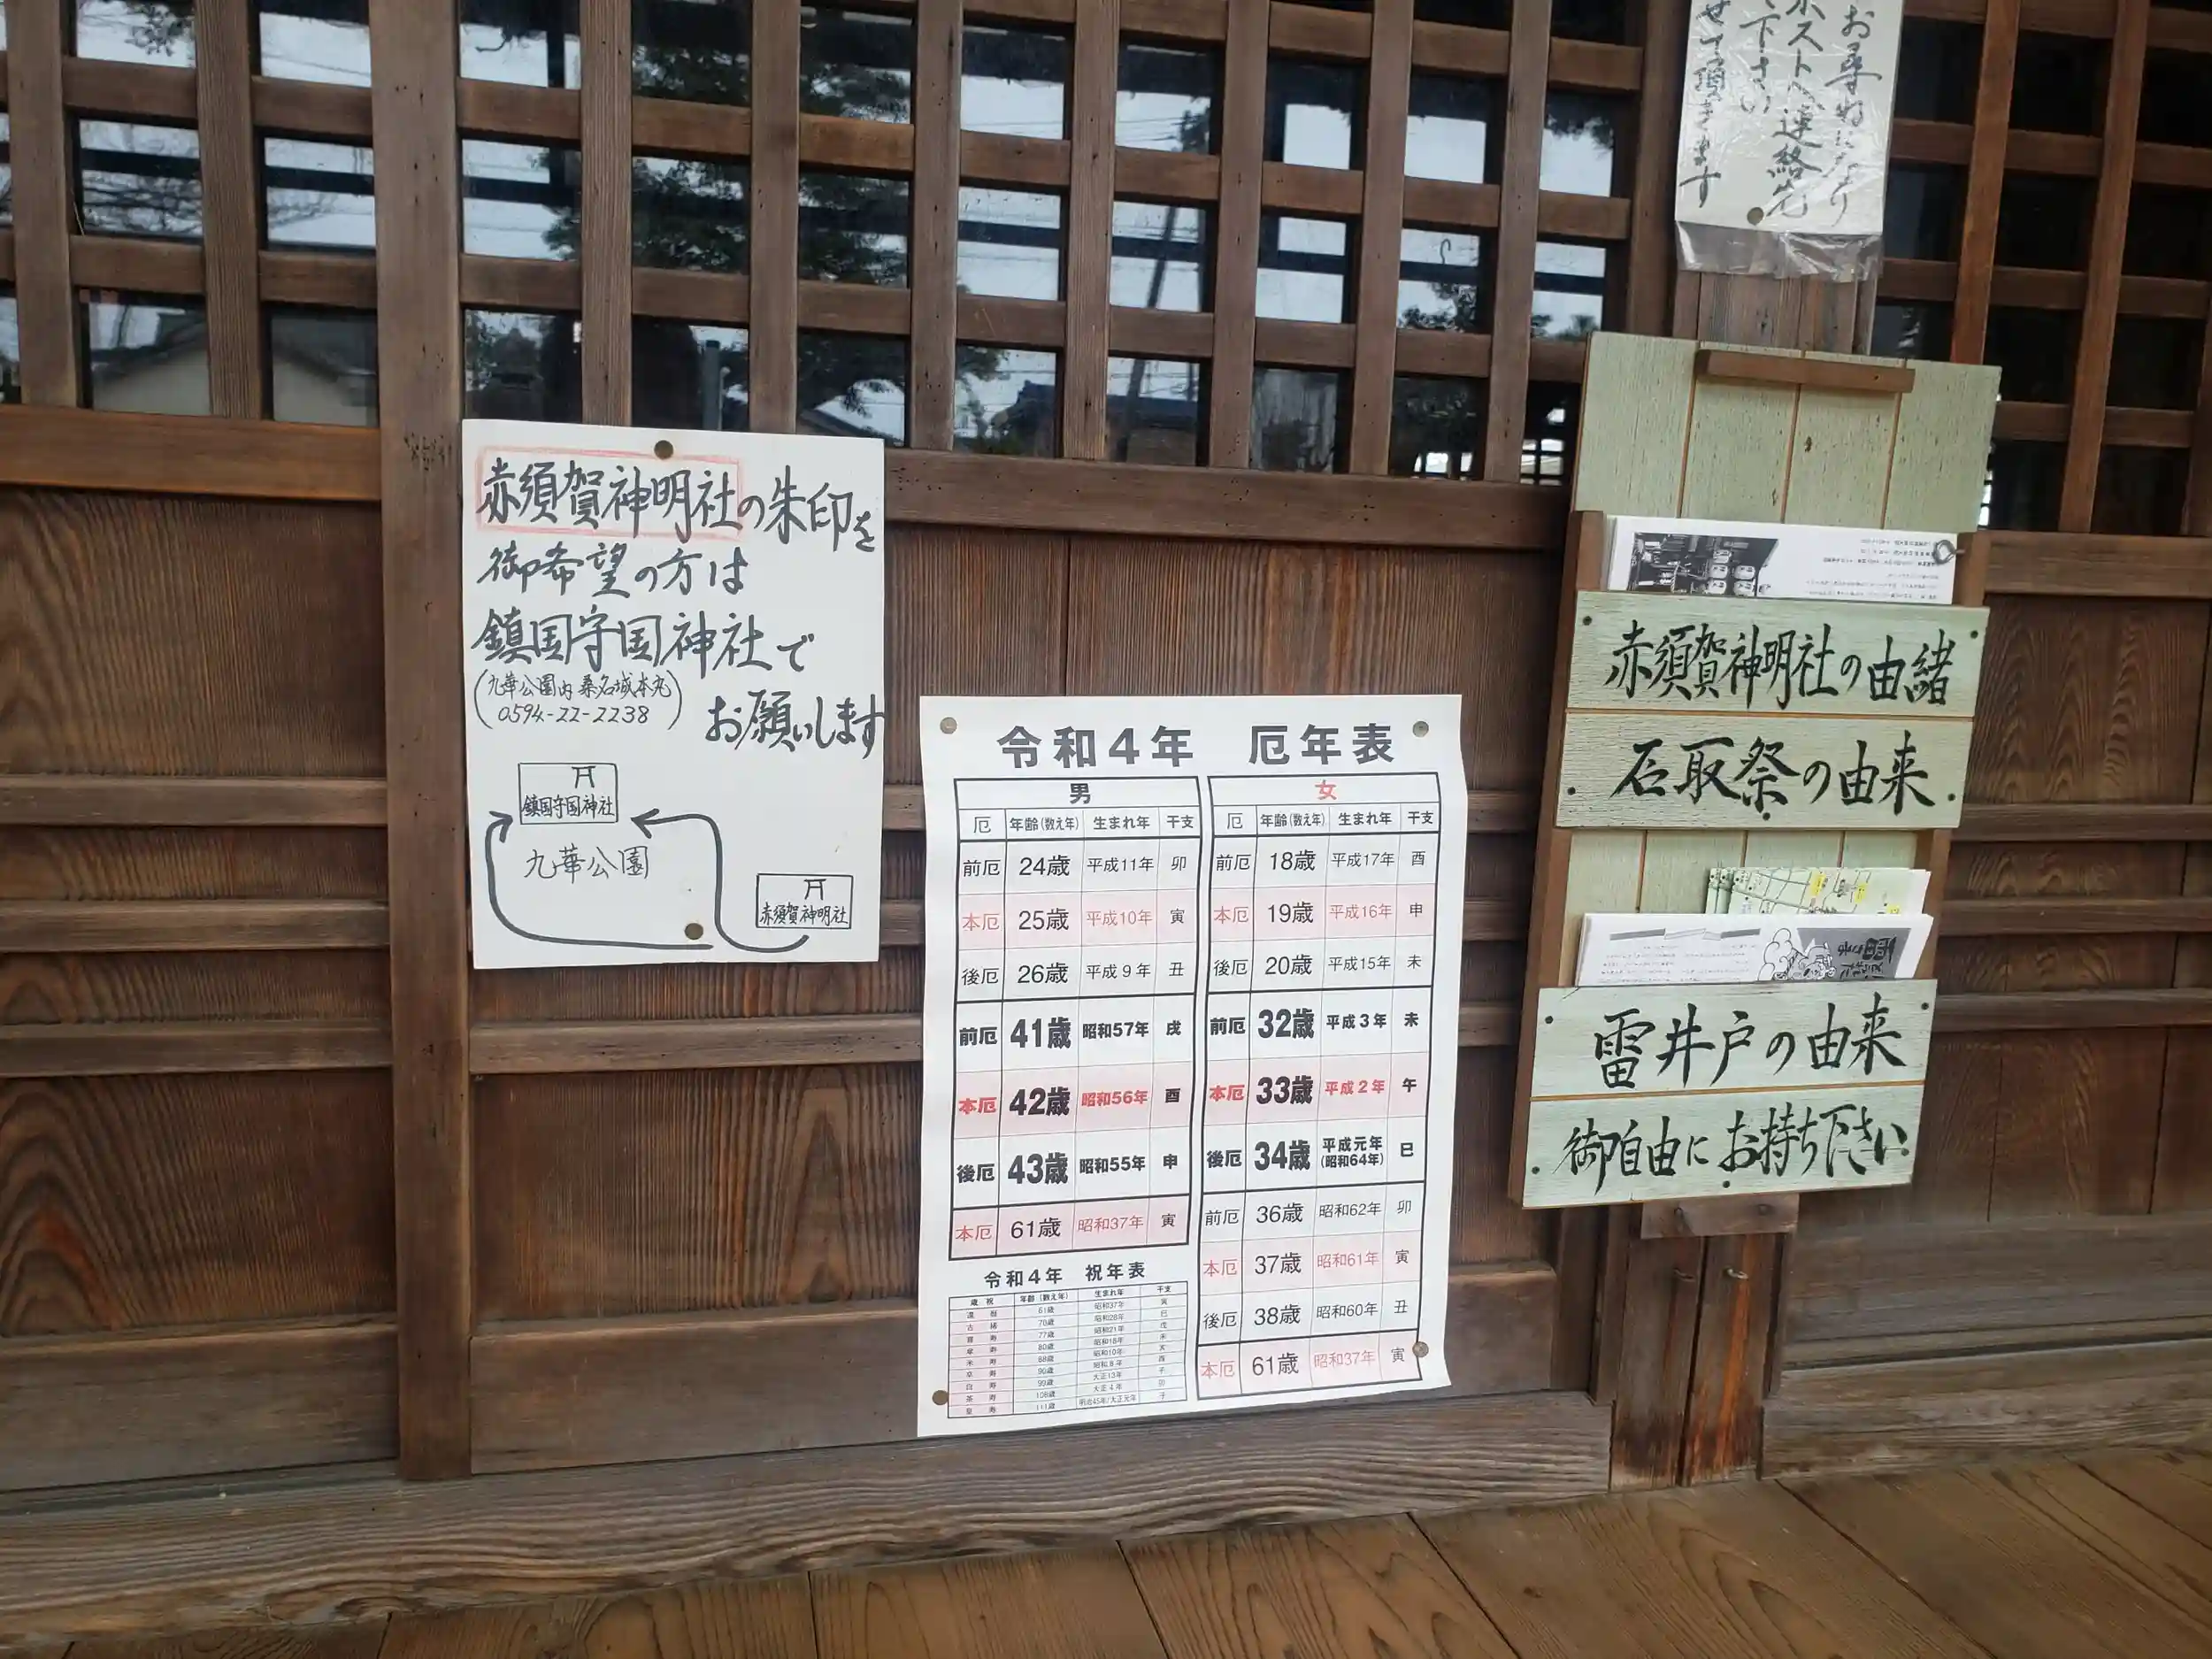 赤須賀神明社の朱印を
御希望の方は
鎮国守国神社で
(九華公園内 桑名城本丸
0594-22-2238)
お願いします
鎮国守国神社
九華公園
赤須賀神明社
令和4年 厄年表
男
厄 年齢(数え年) 生まれ年 干支
前厄 24歳 平成11年 卯
本厄 25歳 平成10年 寅
後厄 26歳 平成9年 丑
前厄 41歳 昭和57年 戌
本厄 42歳 昭和56年 酉
後厄 43歳 昭和55年 申
本厄 61歳 昭和37年 寅
女
厄 年齢(数え年) 生まれ年 干支
前厄 18歳 平成17年 酉
本厄 19歳 平成16年 申
後厄 20歳 平成15年 未
前厄 32歳 平成3年 未
本厄 33歳 平成2年 午
後厄 34歳 平成元年(昭和64年) 巳
前厄 36歳 昭和62年 卯
本厄 37歳 昭和61年 寅
後厄 38歳 昭和60年 丑
本厄 61歳 昭和37年 寅
令和4年 祝年表
歳祝 年齢(数え年) 生まれ年 干支
還暦 61歳 昭和37年 寅
古稀 70歳 昭和28年 巳
喜寿 77歳 昭和21年 戌
傘寿 80歳 昭和18年 未
米寿 88歳 昭和10年 亥
卒寿 90歳 昭和8年 酉
白寿 99歳 大正13年 子
茶寿 108歳 大正4年 卯
皇寿 111歳 明治45年/大正元年 子
お尋ねになり
ポストへ連絡先
下さい
せて頂きます
赤須賀神明社の由緒
石取祭の由来
雷井戸の由来
御自由にお持ち下さい